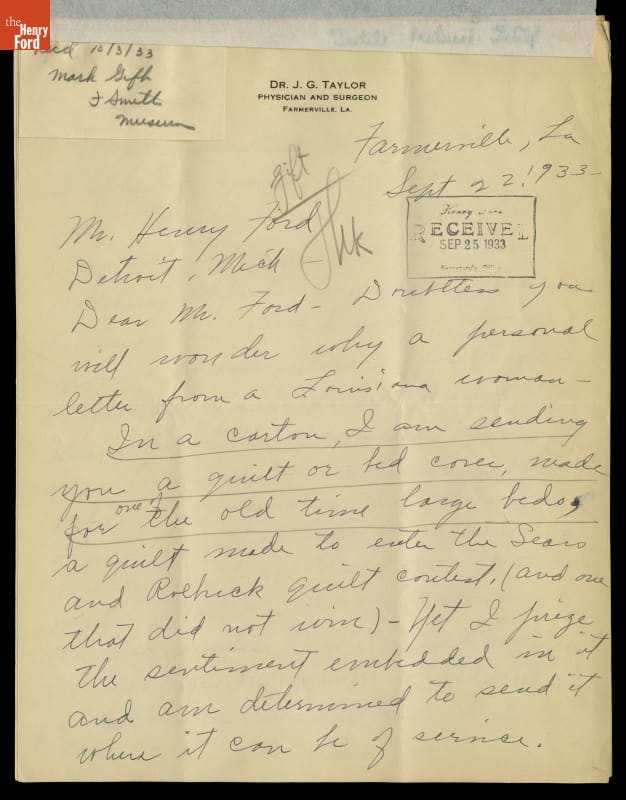 the
Henry
Ford
Rec'd 10/3/33
Mark Gift
F Smith
Museum
DR. J. G. TAYLOR
PHYSICIAN AND SURGEON
FARMERVILLE, LA.
Farmerville, La
Sept 22, 1933-
gift
Mr. Henry Ford
Henry
RECEIVED
SEP 25 1933
Detroit, Mich -
Dear Mr. Ford - Doubtless you
will wonder why a personal
letter from a Louisiana woman -
In a carton, I am sending
you a quilt or bed cover, made
for one of the old time large beds,
a quilt made to enter the Sears
and Roebuck quilt contest, (and one
that did not win) - Yet I prize
the sentiment embedded in it
and am determined to send it
where it can be of service.